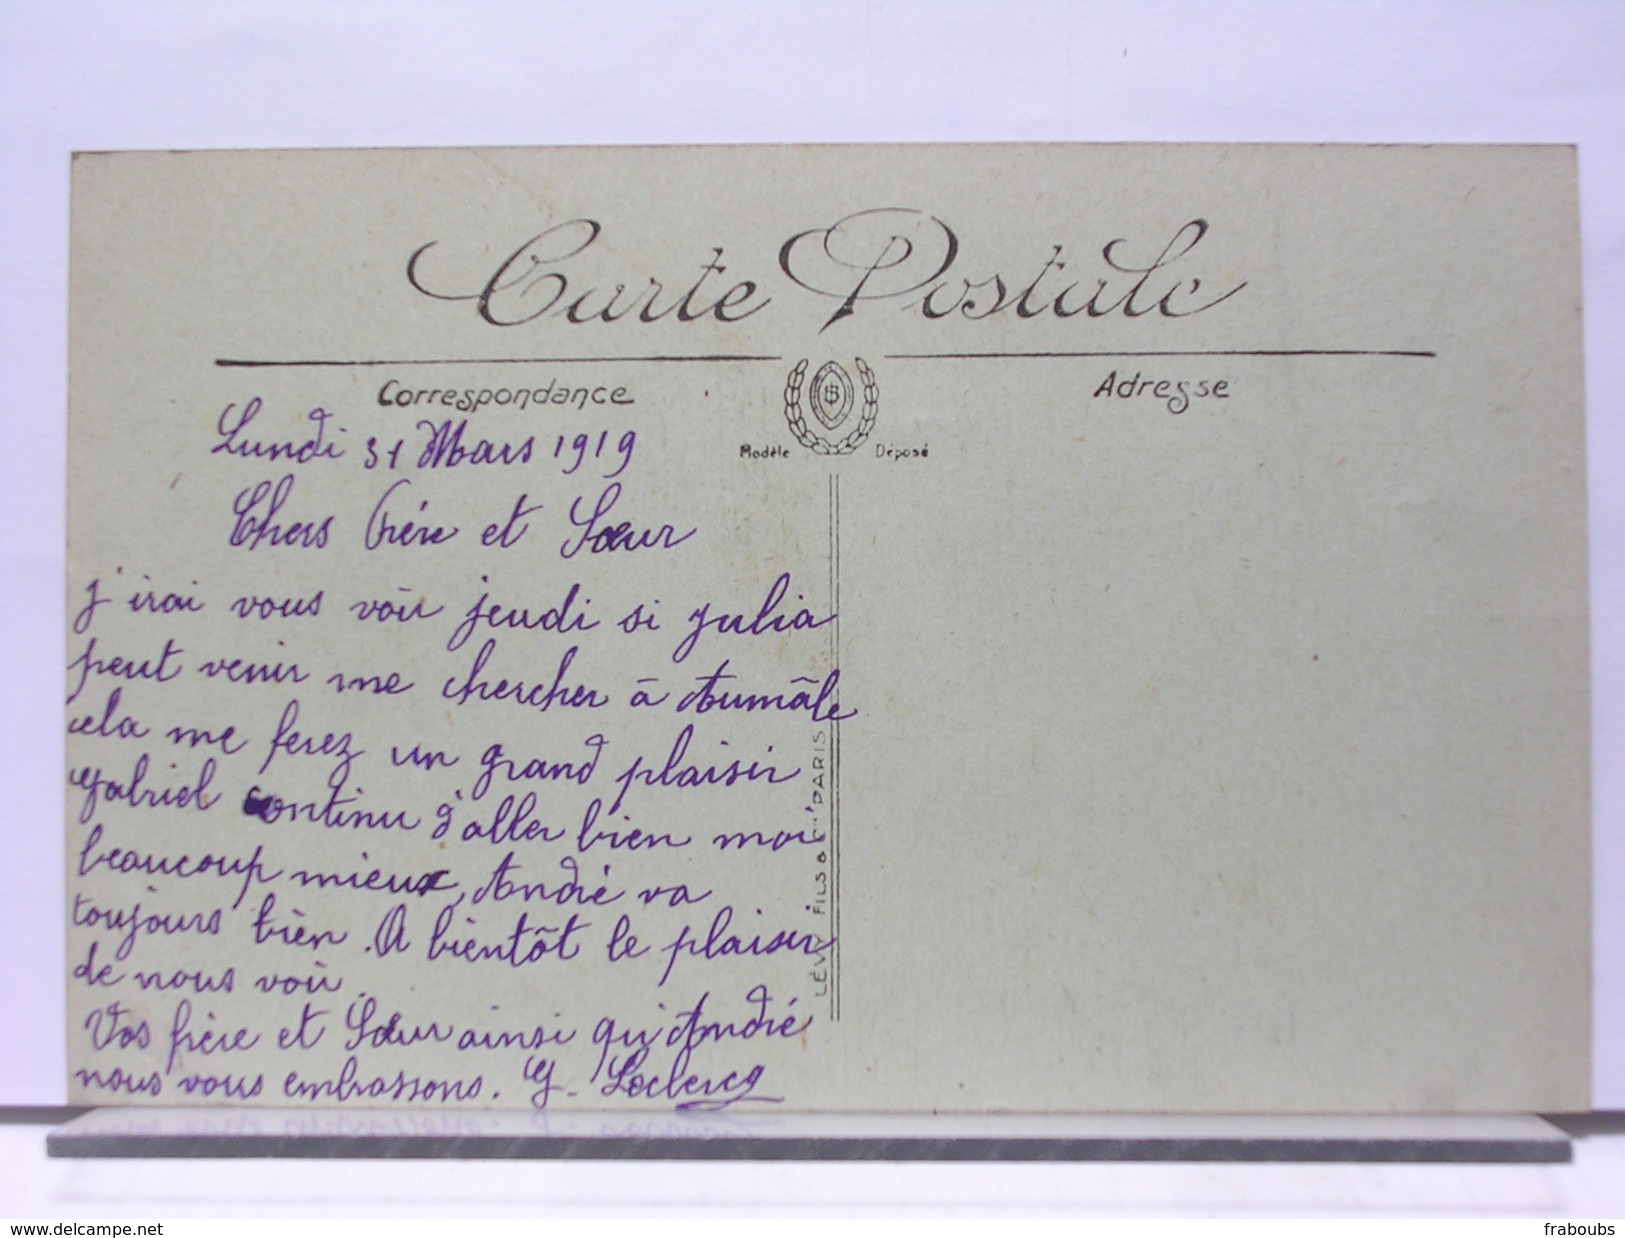 Carte Postale
Correspondance
Adresse
Modèle Déposé
Lundi 31 Mars 1919
Chers Frère et Sœur
j'irai vous voir jeudi si Julia
peut venir me chercher à Aumâle
cela me ferez un grand plaisir
Gabriel continu d'aller bien moi
beaucoup mieux, André va
toujours bien. A bientôt le plaisir
de nous voir.
Vos frère et Sœur ainsi qu'André
nous vous embrassons. G. Leclercq
LÉVY FILS & Cie PARIS
www.delcampe.net
fraboubs